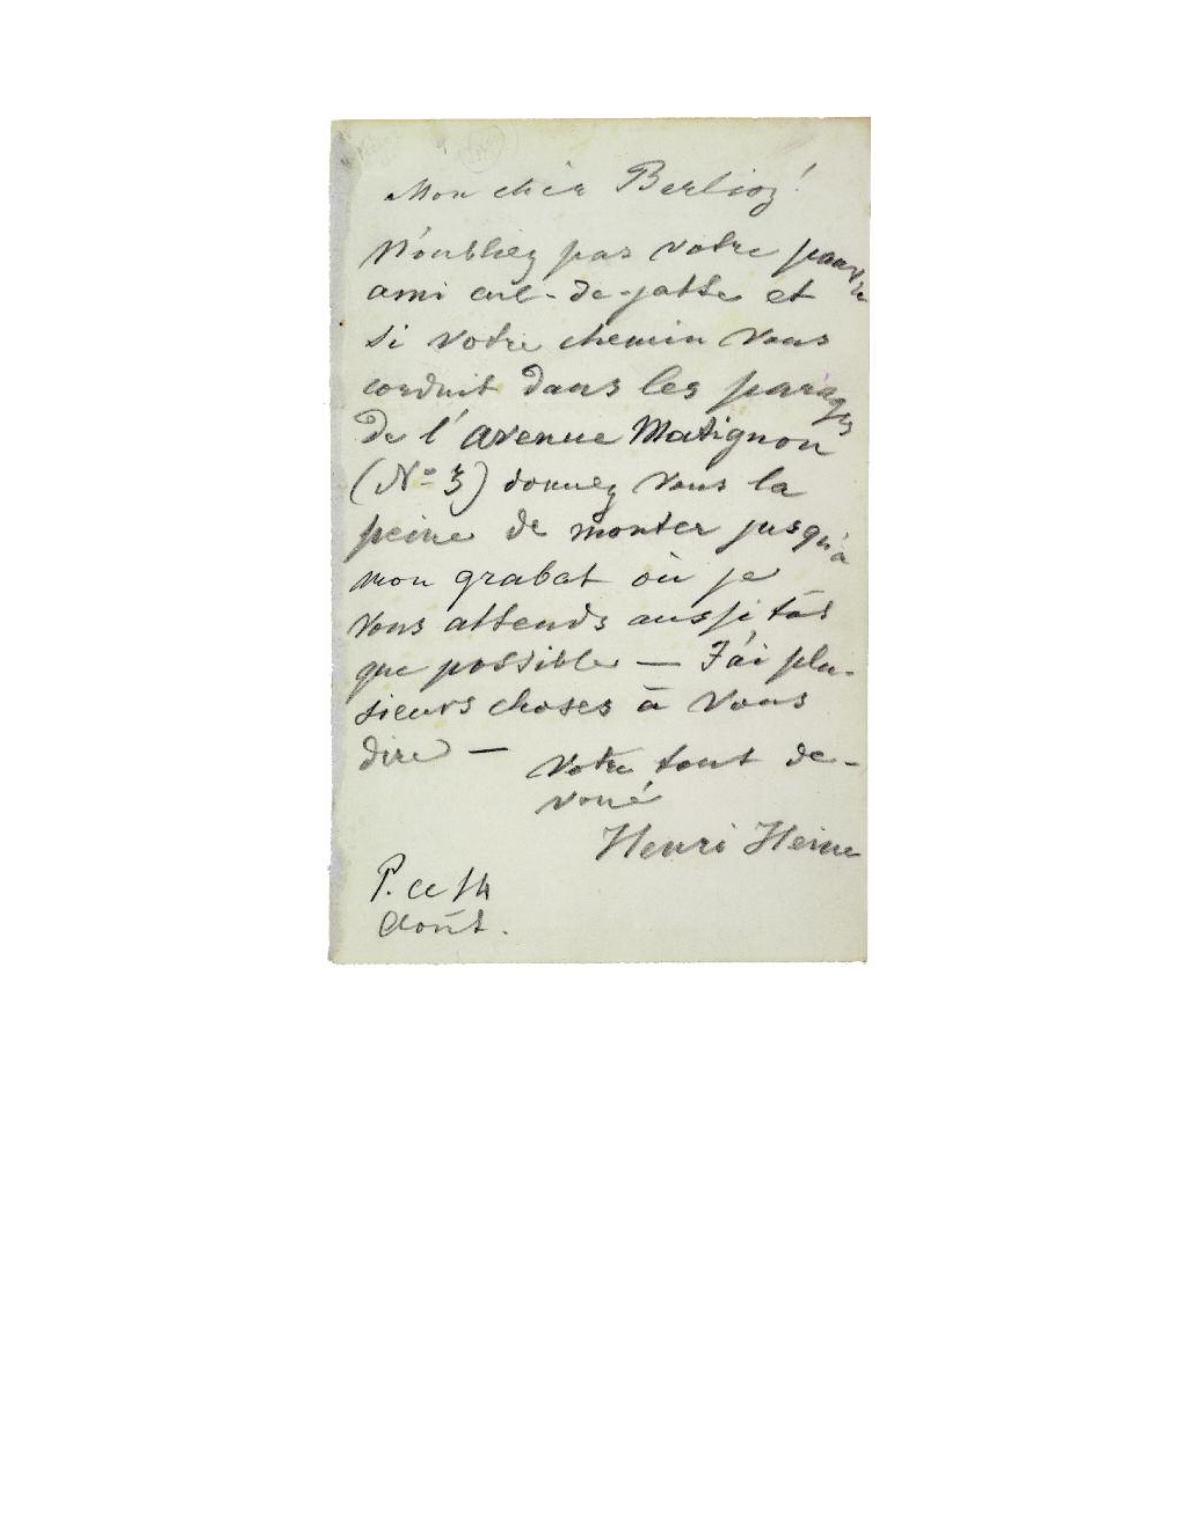 Mon cher Berlioz!
N'oubliez pas votre pauvre
ami cul-de-jatte et
si votre chemin vous
conduit dans les parages
de l'avenue Matignon
(No 3) donnez vous la
peine de monter jusqu'à
mon grabat où je
vous attends aussitôt
que possible — J'ai plu-
sieurs choses à vous
dire —
Votre tout dé-
voué
Henri Heine
P. ce 14
Août.